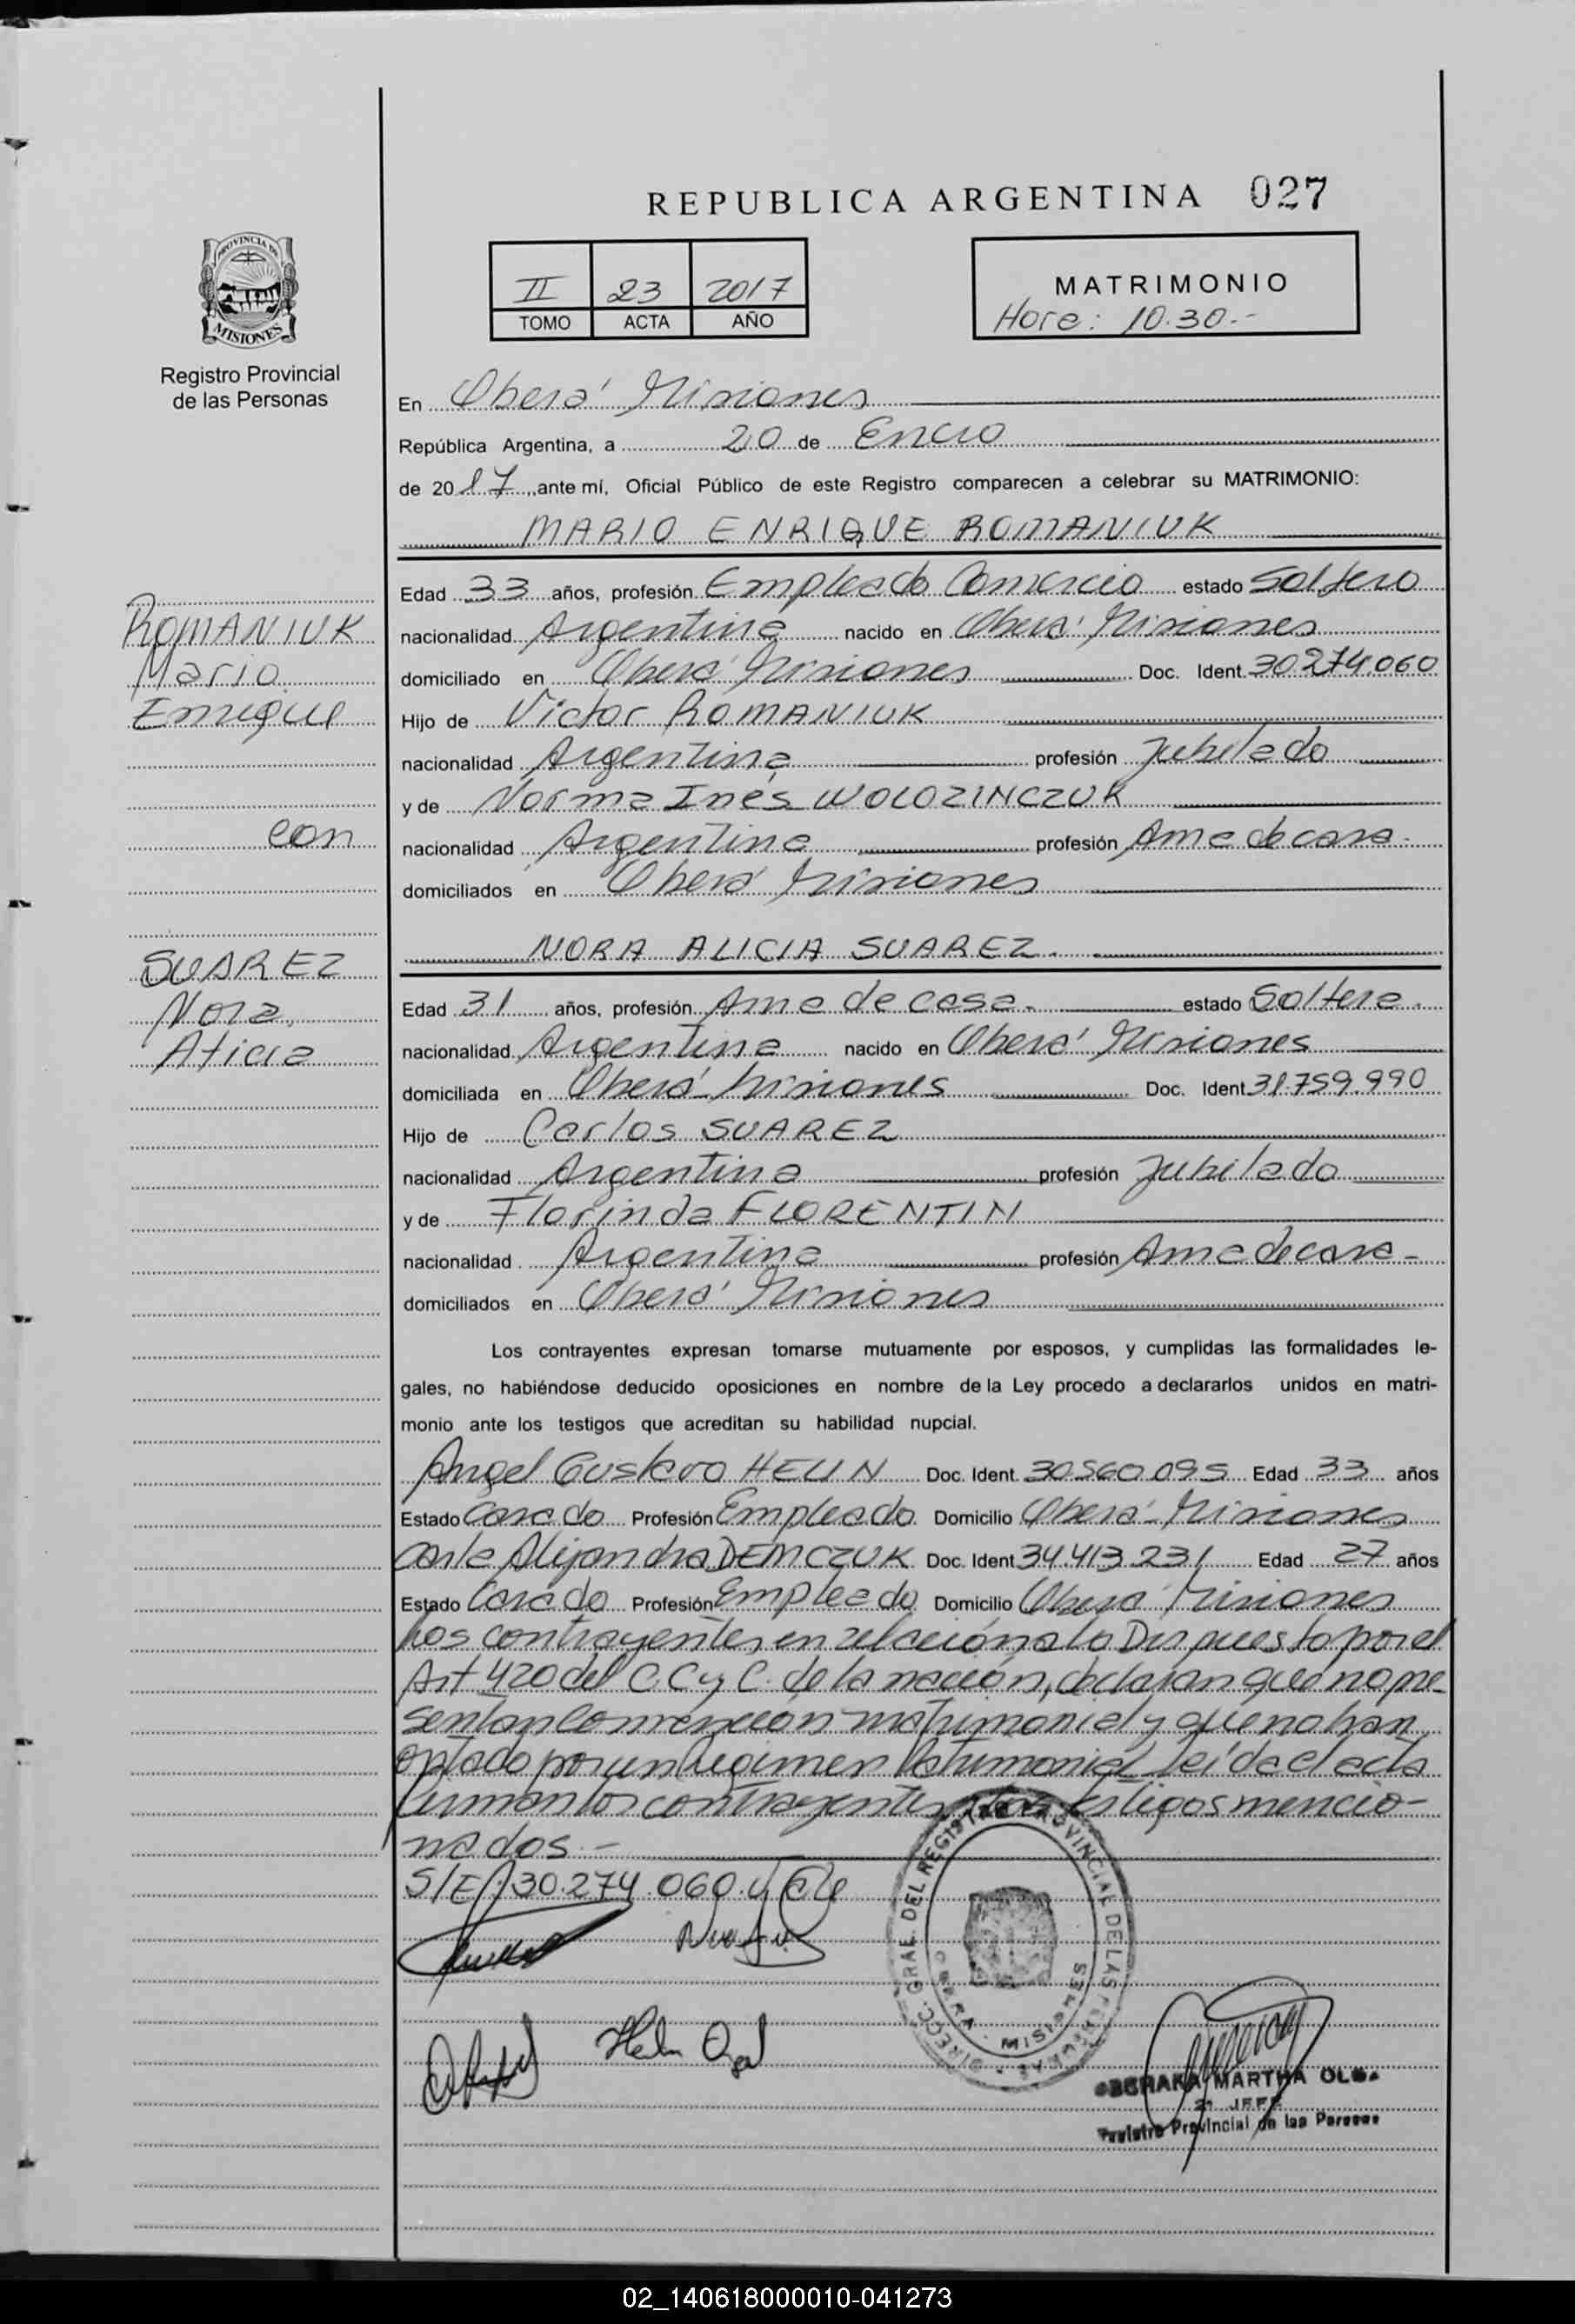 REPUBLICA ARGENTINA 027
PROVINCIA DE
MISIONES
Registro Provincial
de las Personas
II 23 2017
TOMO ACTA AÑO
MATRIMONIO
Hora: 10.30.-
En Oberá Misiones
República Argentina, a 20 de Enero
de 2017, ante mí, Oficial Público de este Registro comparecen a celebrar su MATRIMONIO:
MARIO ENRIQUE ROMANIUK
Edad 33 años, profesión Empleado Comercio estado Soltero
ROMANIUK
nacionalidad Argentina nacido en Oberá Misiones
Mario
domiciliado en Oberá Misiones Doc. Ident. 30.274.060
Enrique
Hijo de Victor ROMANIUK
nacionalidad Argentina profesión Jubilado
y de Norma Inés WOLOZINCZUK
con
nacionalidad Argentina profesión Ama de casa.
domiciliados en Oberá Misiones
NORA ALICIA SUAREZ.
SUAREZ
Edad 31 años, profesión Ama de casa. estado Soltera.
Nora
nacionalidad Argentina nacido en Oberá Misiones
Alicia
domiciliada en Oberá Misiones Doc. Ident. 31.759.990
Hijo de Carlos SUAREZ
nacionalidad Argentina profesión Jubilado
y de Florinda FLORENTIN
nacionalidad Argentina profesión Ama de casa-
domiciliados en Oberá Misiones
Los contrayentes expresan tomarse mutuamente por esposos, y cumplidas las formalidades le-
gales, no habiéndose deducido oposiciones en nombre de la Ley procedo a declararlos unidos en matri-
monio ante los testigos que acreditan su habilidad nupcial.
Angel Gustavo HELIN Doc. Ident. 30560.095 Edad 33 años
Estado Casado Profesión Empleado Domicilio Oberá-Misiones
Carla Alejandra DEMCZUK Doc. Ident 34.413.231 Edad 27 años
Estado Casado Profesión Empleado Domicilio Oberá Misiones
Los contrayentes, en relación a lo Dispuesto por el
Art 420 del C.C y C. de la nación, declaran que no pre-
sentan Convención matrimonial y que no han
optado por un Regimen Patrimonial Leída el acta
firman los contrayentes y los testigos mencio-
nados.-
S/E/:30.274.060. Vale
DIRECC. GRAL. DEL REGISTRO PROVINCIAL DE LAS PERSONAS
OBERA - MISIONES
Helin Angel
MARTHA OLGA
2º JEFE
Registro Provincial de las Personas
02_140618000010-041273